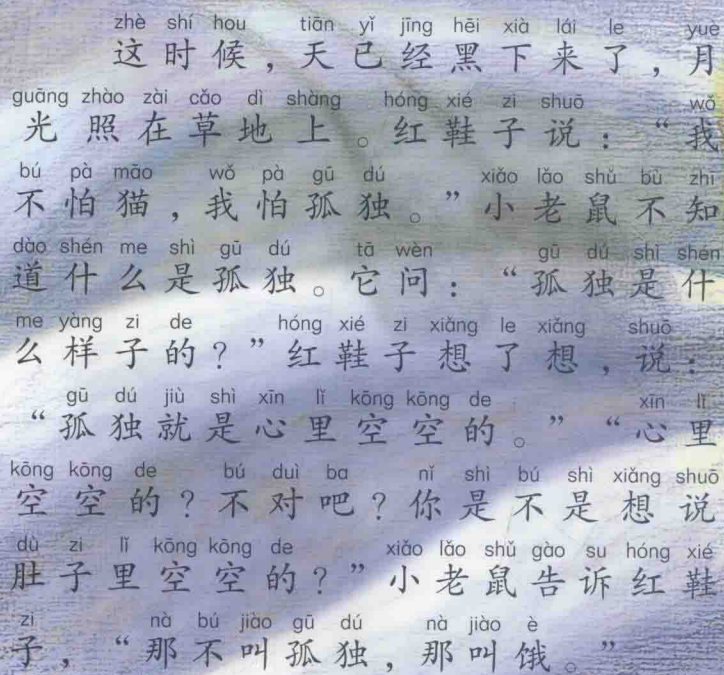 zhè shí hou tiān yǐ jīng hēi xià lái le yuè
这时候，天已经黑下来了，月
guāng zhào zài cǎo dì shàng hóng xié zi shuō wǒ
光照在草地上。红鞋子说：“我
bú pà māo wǒ pà gū dú xiǎo lǎo shǔ bù zhī
不怕猫，我怕孤独。”小老鼠不知
dào shén me shì gū dú tā wèn gū dú shì shén
道什么是孤独。它问：“孤独是什
me yàng zi de hóng xié zi xiǎng le xiǎng shuō
么样子的？”红鞋子想了想，说：
gū dú jiù shì xīn lǐ kōng kōng de xīn lǐ
“孤独就是心里空空的。”“心里
kōng kōng de bú duì ba nǐ shì bú shì xiǎng shuō
空空的？不对吧？你是不是想说
dù zi lǐ kōng kōng de xiǎo lǎo shǔ gào su hóng xié
肚子里空空的？”小老鼠告诉红鞋
zi nà bú jiào gū dú nà jiào è
子，“那不叫孤独，那叫饿。”